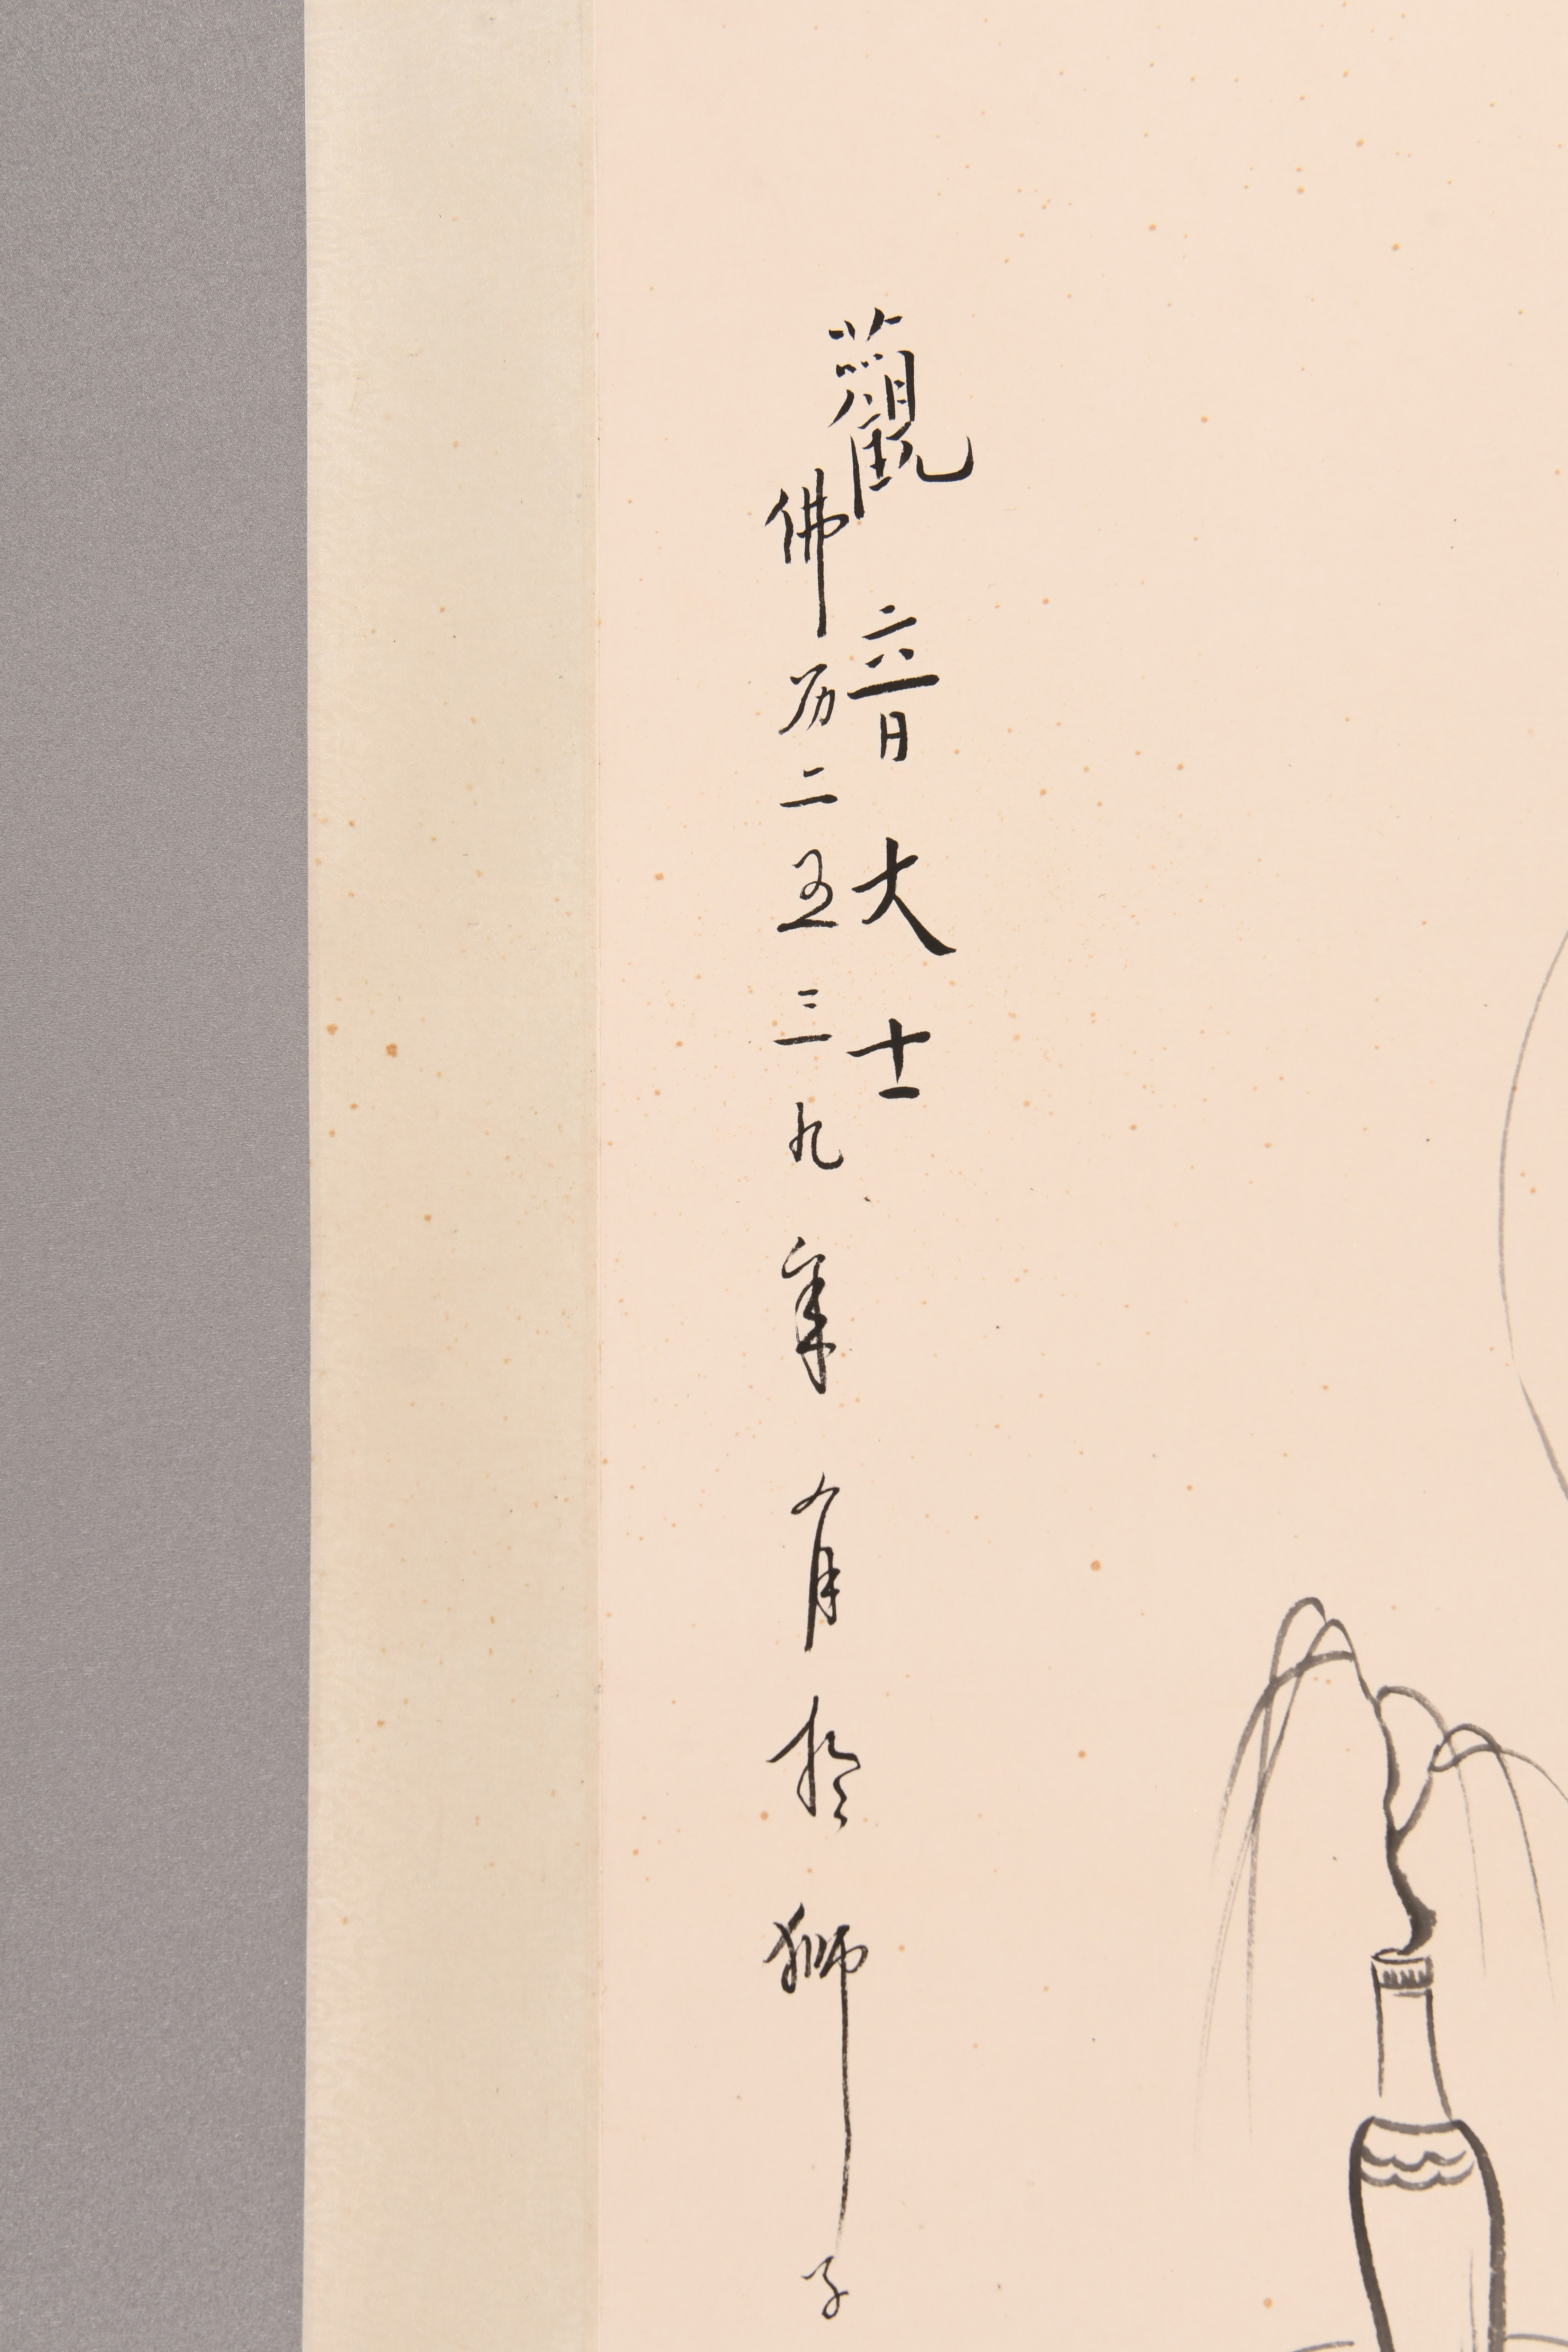 觀音大士
佛历二五三九年八月於獅子